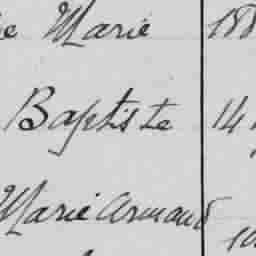 e Marie 188
Baptiste 14
Marie Armand